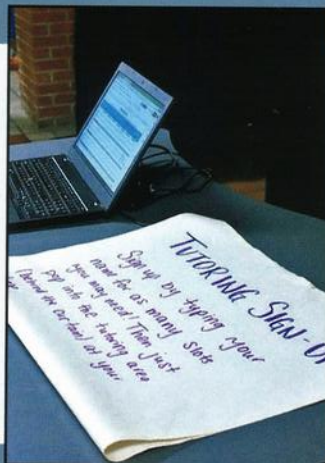 TUTORING SIGN-U
Sign up by typing your
name for as many slots
you may need! Then just
pop into the tutoring area
at your